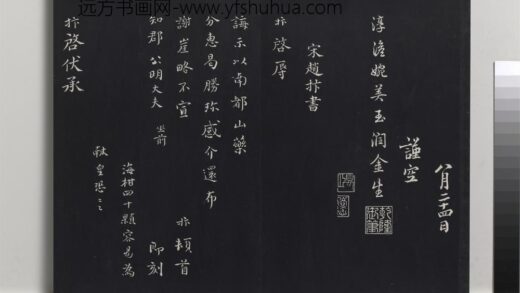 远方书画网-www.yfshuhua.com
八月二十四日
謹空
淳澹婉美玉潤金生
乾隆御筆
宋趙抃書
抃啓辱
誨示以南都山藥
分惠曷勝珍感介還布
謝崖略不宣
抃頓首
知郡公明大夫坐前
即刻
海柑四十顆容易為
獻皇恐之
抃啓伏承